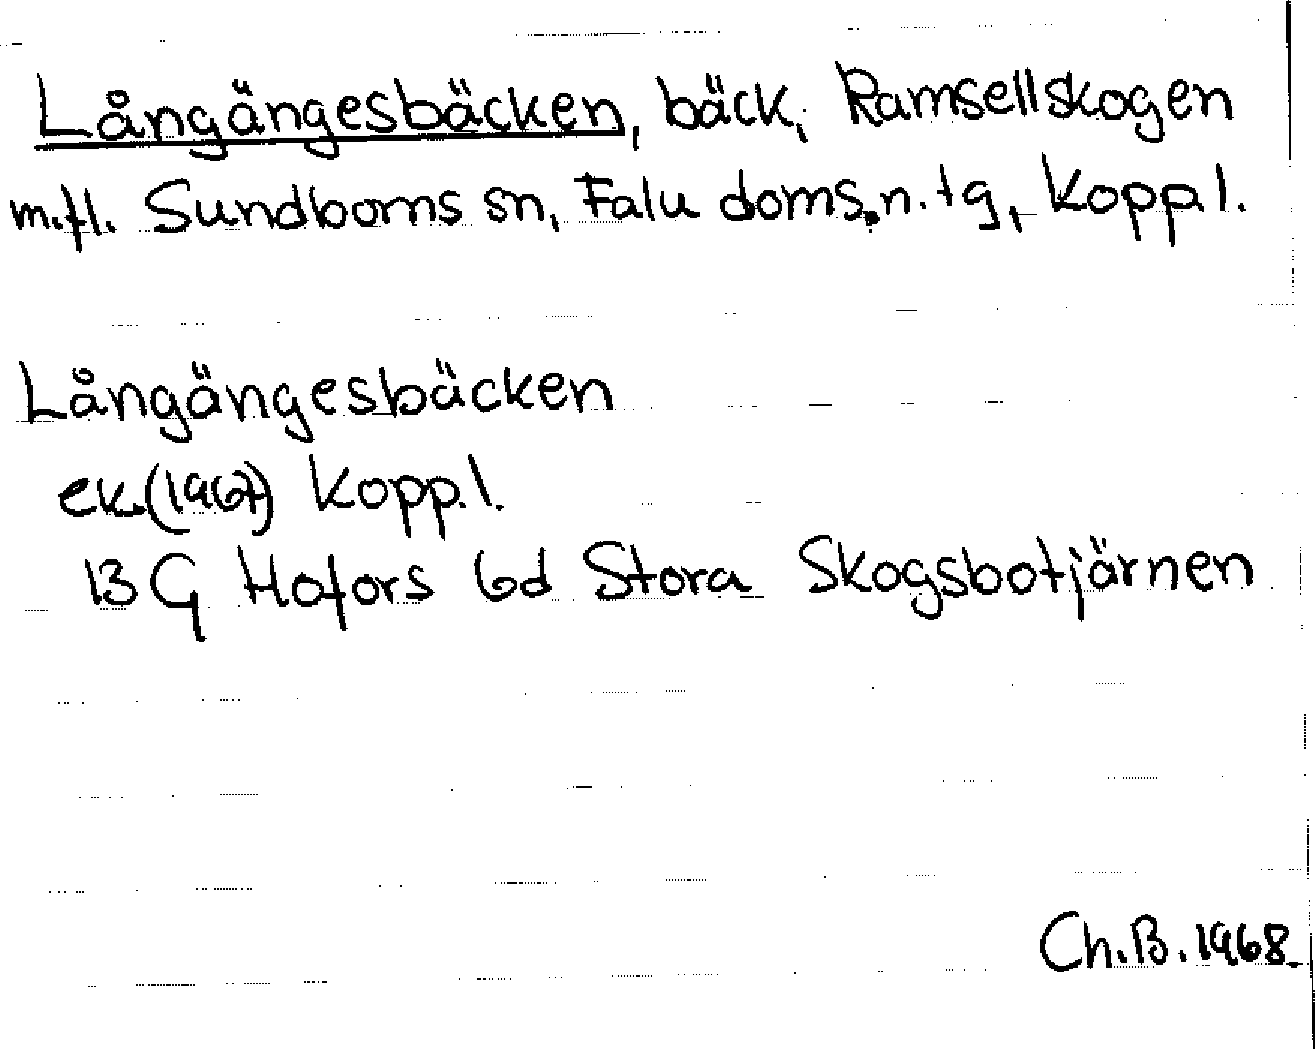 Långängesbäcken, bäck, Ramsellskogen
m.fl. Sundborns sn, Falu doms.n.tg, Kopp.l.
Långängesbäcken
ek.(1967) Kopp.l.
13 G Hofors 6d Stora Skogsbotjärnen
Ch.B.1968